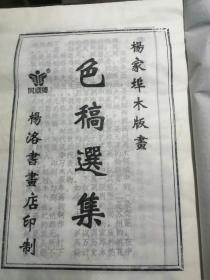 楊家埠木版畫
色稿選集
楊洛書畫店印制